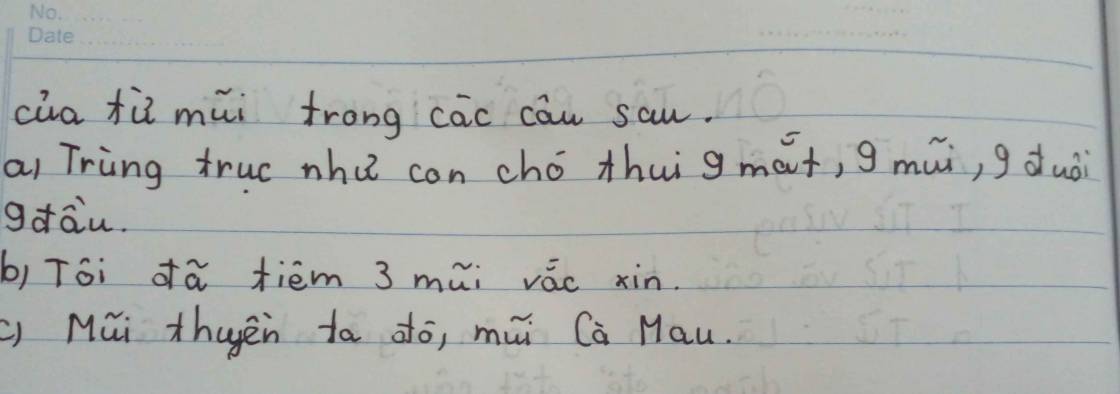 No. ............
Date ....................
của từ mũi trong các câu sau.
a) Trùng trục như con chó thui 9 mắt, 9 mũi, 9 đuôi
9 đầu.
b) Tôi đã tiêm 3 mũi vắc xin.
c) Mũi thuyền ta đó, mũi Cà Mau.